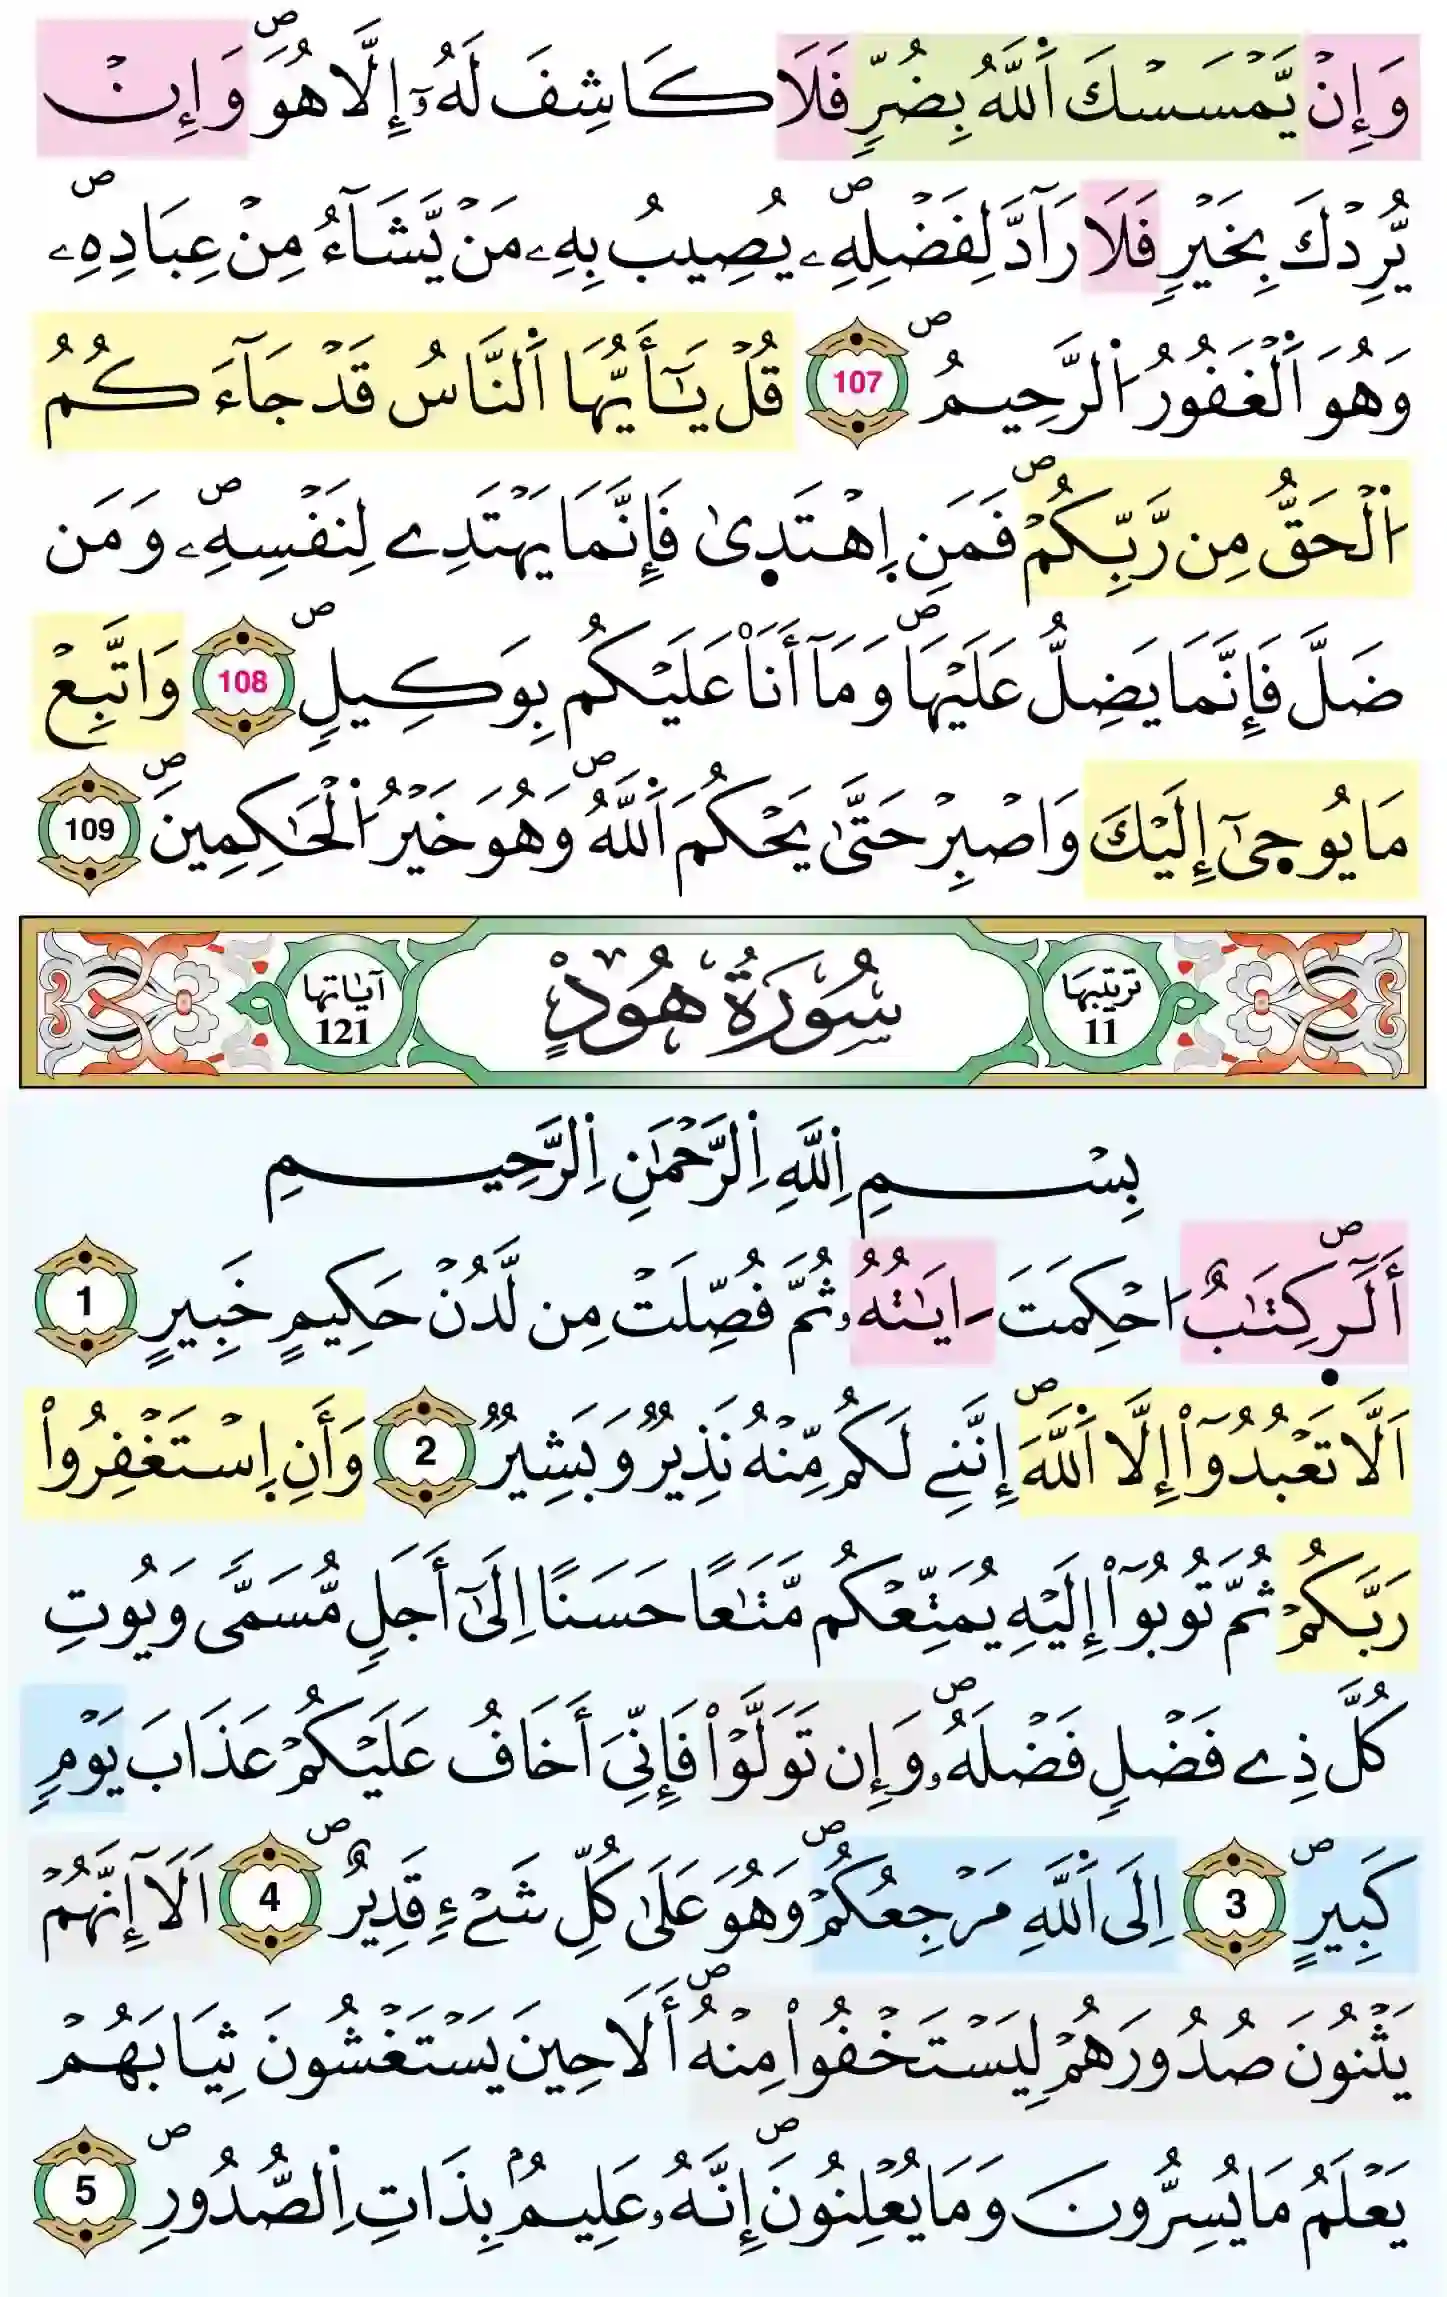 وَإِنْ يَّمْسَسْكَ اَ۬للَّهُ بِضُرٍّ فَلَا كَاشِفَ لَهُۥٓ إِلَّا هُوَۖ وَإِنْ
يُّرِدْكَ بِخَيْرٍ فَلَا رَآدَّ لِفَضْلِهِۦۖ يُصِيبُ بِهِۦ مَنْ يَّشَآءُ مِنْ عِبَادِهِۦۖ
وَهُوَ اَ۬لْغَفُورُ اُ۬لرَّحِيمُۖ 107 قُلْ يَٰٓأَيُّهَا اَ۬لنَّاسُ قَدْ جَآءَكُمُ
اُ۬لْحَقُّ مِن رَّبِّكُمْۖ فَمَنِ اِ۪هْتَد۪ىٰ فَإِنَّمَا يَهْتَدِے لِنَفْسِهِۦۖ وَمَن
ضَلَّ فَإِنَّمَا يَضِلُّ عَلَيْهَاۖ وَمَآ أَنَا۠ عَلَيْكُم بِوَكِيلٍۖ 108 وَاتَّبِعْ
مَا يُوح۪ىٰٓ إِلَيْكَ وَاصْبِرْ حَتَّىٰ يَحْكُمَ اَ۬للَّهُۖ وَهُوَ خَيْرُ اُ۬لْحَٰكِمِينَۖ 109
ترتيبها 11 سُورَةُ هُودٍ آياتها 121
بِسْمِ اِ۬للَّهِ اِ۬لرَّحْمَٰنِ اِ۬لرَّحِيمِ
أَلَٓر۪ۖ كِتَٰبٌ اُحْكِمَتَ اٰيَٰتُهُۥ ثُمَّ فُصِّلَتْ مِن لَّدُنْ حَكِيمٍ خَبِيرٍ 1
اَلَّا تَعْبُدُوٓاْ إِلَّا اَ۬للَّهَۖ إِنَّنِے لَكُم مِّنْهُ نَذِيرٌ وَبَشِيرٌ 2 وَأَنِ اِ۪سْتَغْفِرُواْ
رَبَّكُمْ ثُمَّ تُوبُوٓاْ إِلَيْهِ يُمَتِّعْكُم مَّتَٰعًا حَسَنًا اِلَىٰٓ أَجَلٍ مُّسَمًّى وَيُوتِ
كُلَّ ذِے فَضْلٍ فَضْلَهُۥۖ وَإِن تَوَلَّوْاْ فَإِنِّيَ أَخَافُ عَلَيْكُمْ عَذَابَ يَوْمٍ
كَبِيرٍۖ 3 اِلَى اَ۬للَّهِ مَرْجِعُكُمْۖ وَهُوَ عَلَىٰ كُلِّ شَےْءٍ قَدِيرٌۖ 4 اَلَآ إِنَّهُمْ
يَثْنُونَ صُدُورَهُمْ لِيَسْتَخْفُواْ مِنْهُۖ أَلَا حِينَ يَسْتَغْشُونَ ثِيَابَهُمْ
يَعْلَمُ مَا يُسِرُّونَ وَمَا يُعْلِنُونَۖ إِنَّهُۥ عَلِيمُۢ بِذَاتِ اِ۬لصُّدُورِۖ 5